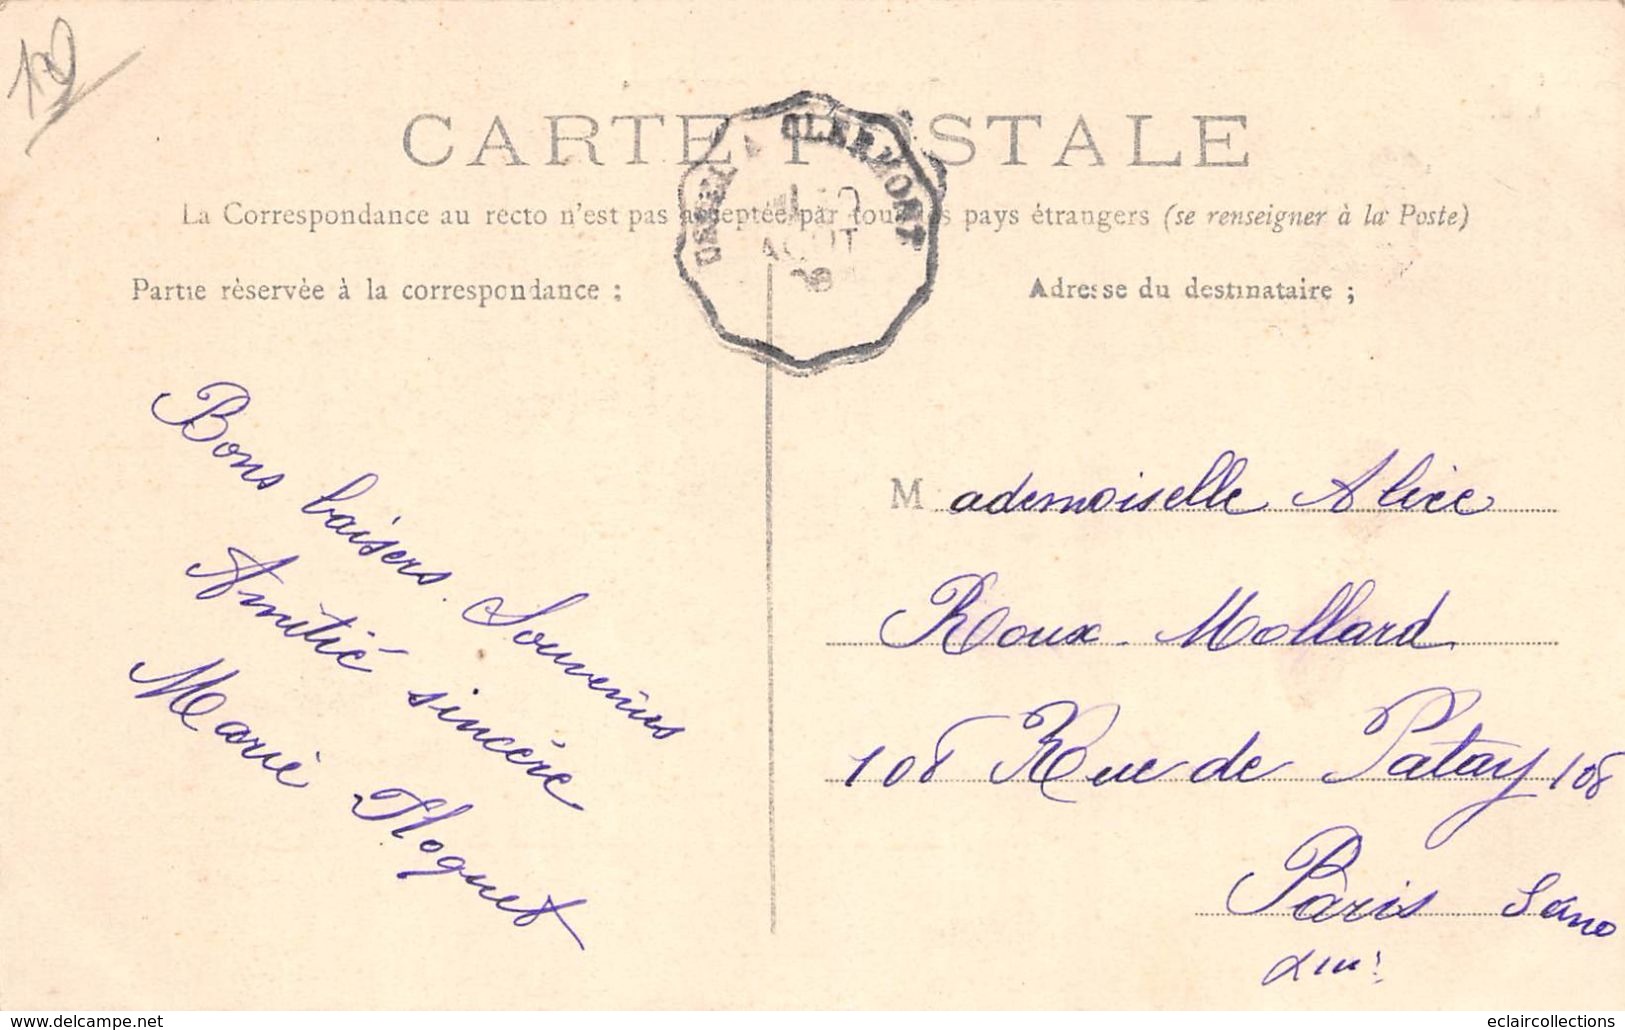 CARTE POSTALE
La Correspondance au recto n'est pas acceptée par tous les pays étrangers (se renseigner à la Poste)
USSEL A CLERMONT
AOUT
Partie rèservée à la correspondance :
Adresse du destinataire ;
Bons baisers. Souvenirs
Amitié sincère
Marie Hoguet
Mademoiselle Alice
Roux-Mollard
108 Rue de Patay 108
Paris
www.delcampe.net
eclaircollections